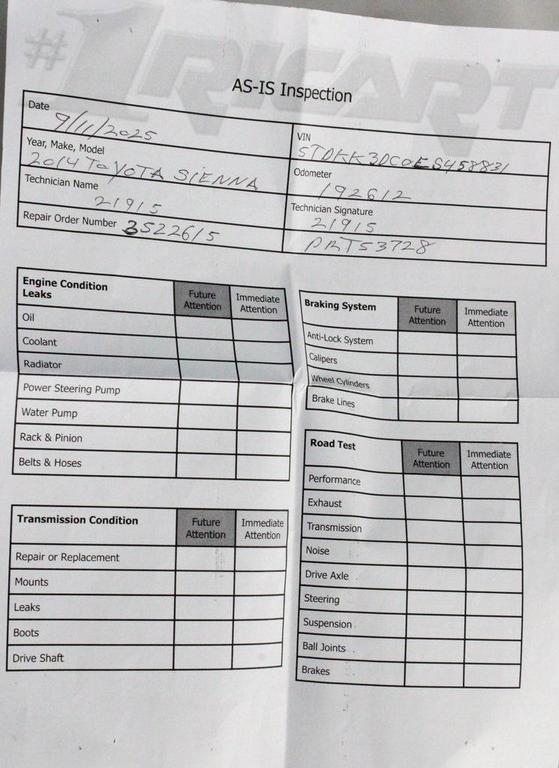 #1 RICART
AS-IS Inspection
Date
9/11/2025
VIN
5TDKK3DC0ES458831
Year, Make, Model
2014 ToYOTA SIENNA
Odometer
192612
Technician Name
21915
Technician Signature
21915
Repair Order Number 3522615
PRT53728
Engine Condition
Leaks
Future
Attention
Immediate
Attention
Oil
Coolant
Radiator
Power Steering Pump
Water Pump
Rack & Pinion
Belts & Hoses
Braking System
Future
Attention
Immediate
Attention
Anti-Lock System
Calipers
Wheel Cylinders
Brake Lines
Transmission Condition
Future
Attention
Immediate
Attention
Repair or Replacement
Mounts
Leaks
Boots
Drive Shaft
Road Test
Future
Attention
Immediate
Attention
Performance
Exhaust
Transmission
Noise
Drive Axle
Steering
Suspension
Ball Joints
Brakes